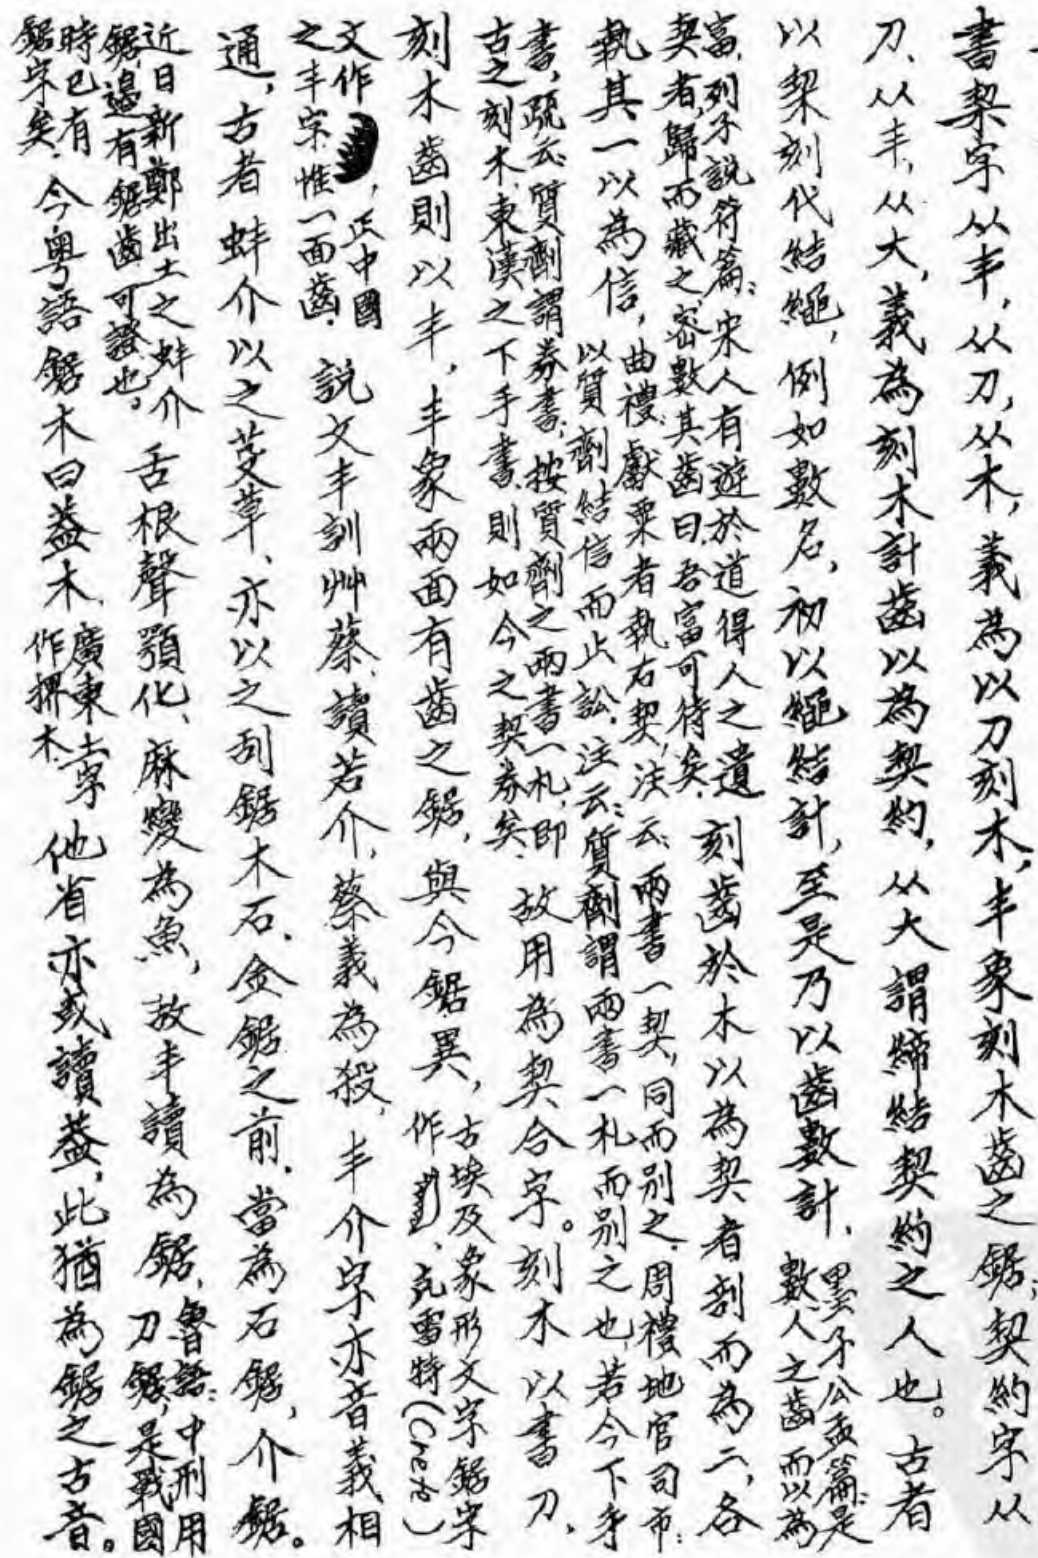 書栔字从丯,从刀,从木,義為以刀刻木,丯象刻木齒之鋸;契約字从
刀、从丯,从大,義為刻木計齒以為契約,从大謂締結契約之人也。古者
以栔刻代結繩,例如數名,初以繩結計,至是乃以齒數計,墨子公孟篇:是數人之齒而以為
富,列子說符篇:宋人有遊於道得人之遺契者,歸而藏之,密數其齒曰,吾富可待矣.刻齒於木以為契者剖而為二,各
執其一以為信,曲禮,獻粟者執右契,注云:兩書一契,同而別之.周禮地官司市:以質劑結信而止訟.注云:質劑謂兩書一札而別之也,若今下手
書,疏云:質劑謂券書,按質劑之兩書一札,即古之刻木,東漢之下手書,則如今之契券矣.故用為契合字。刻木以書刀,
刻木齒則以丯,丯象兩面有齒之鋸,與今鋸異,古埃及象形文字鋸字作、克雷特(Crete)
文作,正中國之丯字惟一面齒.說文丯訓艸蔡,讀若介,蔡義為殺,丯介字亦音義相
通,古者蚌介以之芟草、亦以之刮鋸木石.金鋸之前,當為石鋸,介鋸。
近日新鄭出土之蚌介鋸,邊有鋸齒可證也。舌根聲顎化、麻變為魚,故丯讀為鋸,魯語:中刑用刀鋸,是戰國
時已有鋸字矣.今粵語鋸木曰蓋木,廣東土字作𢱕木.他省亦或讀蓋,此猶為鋸之古音。